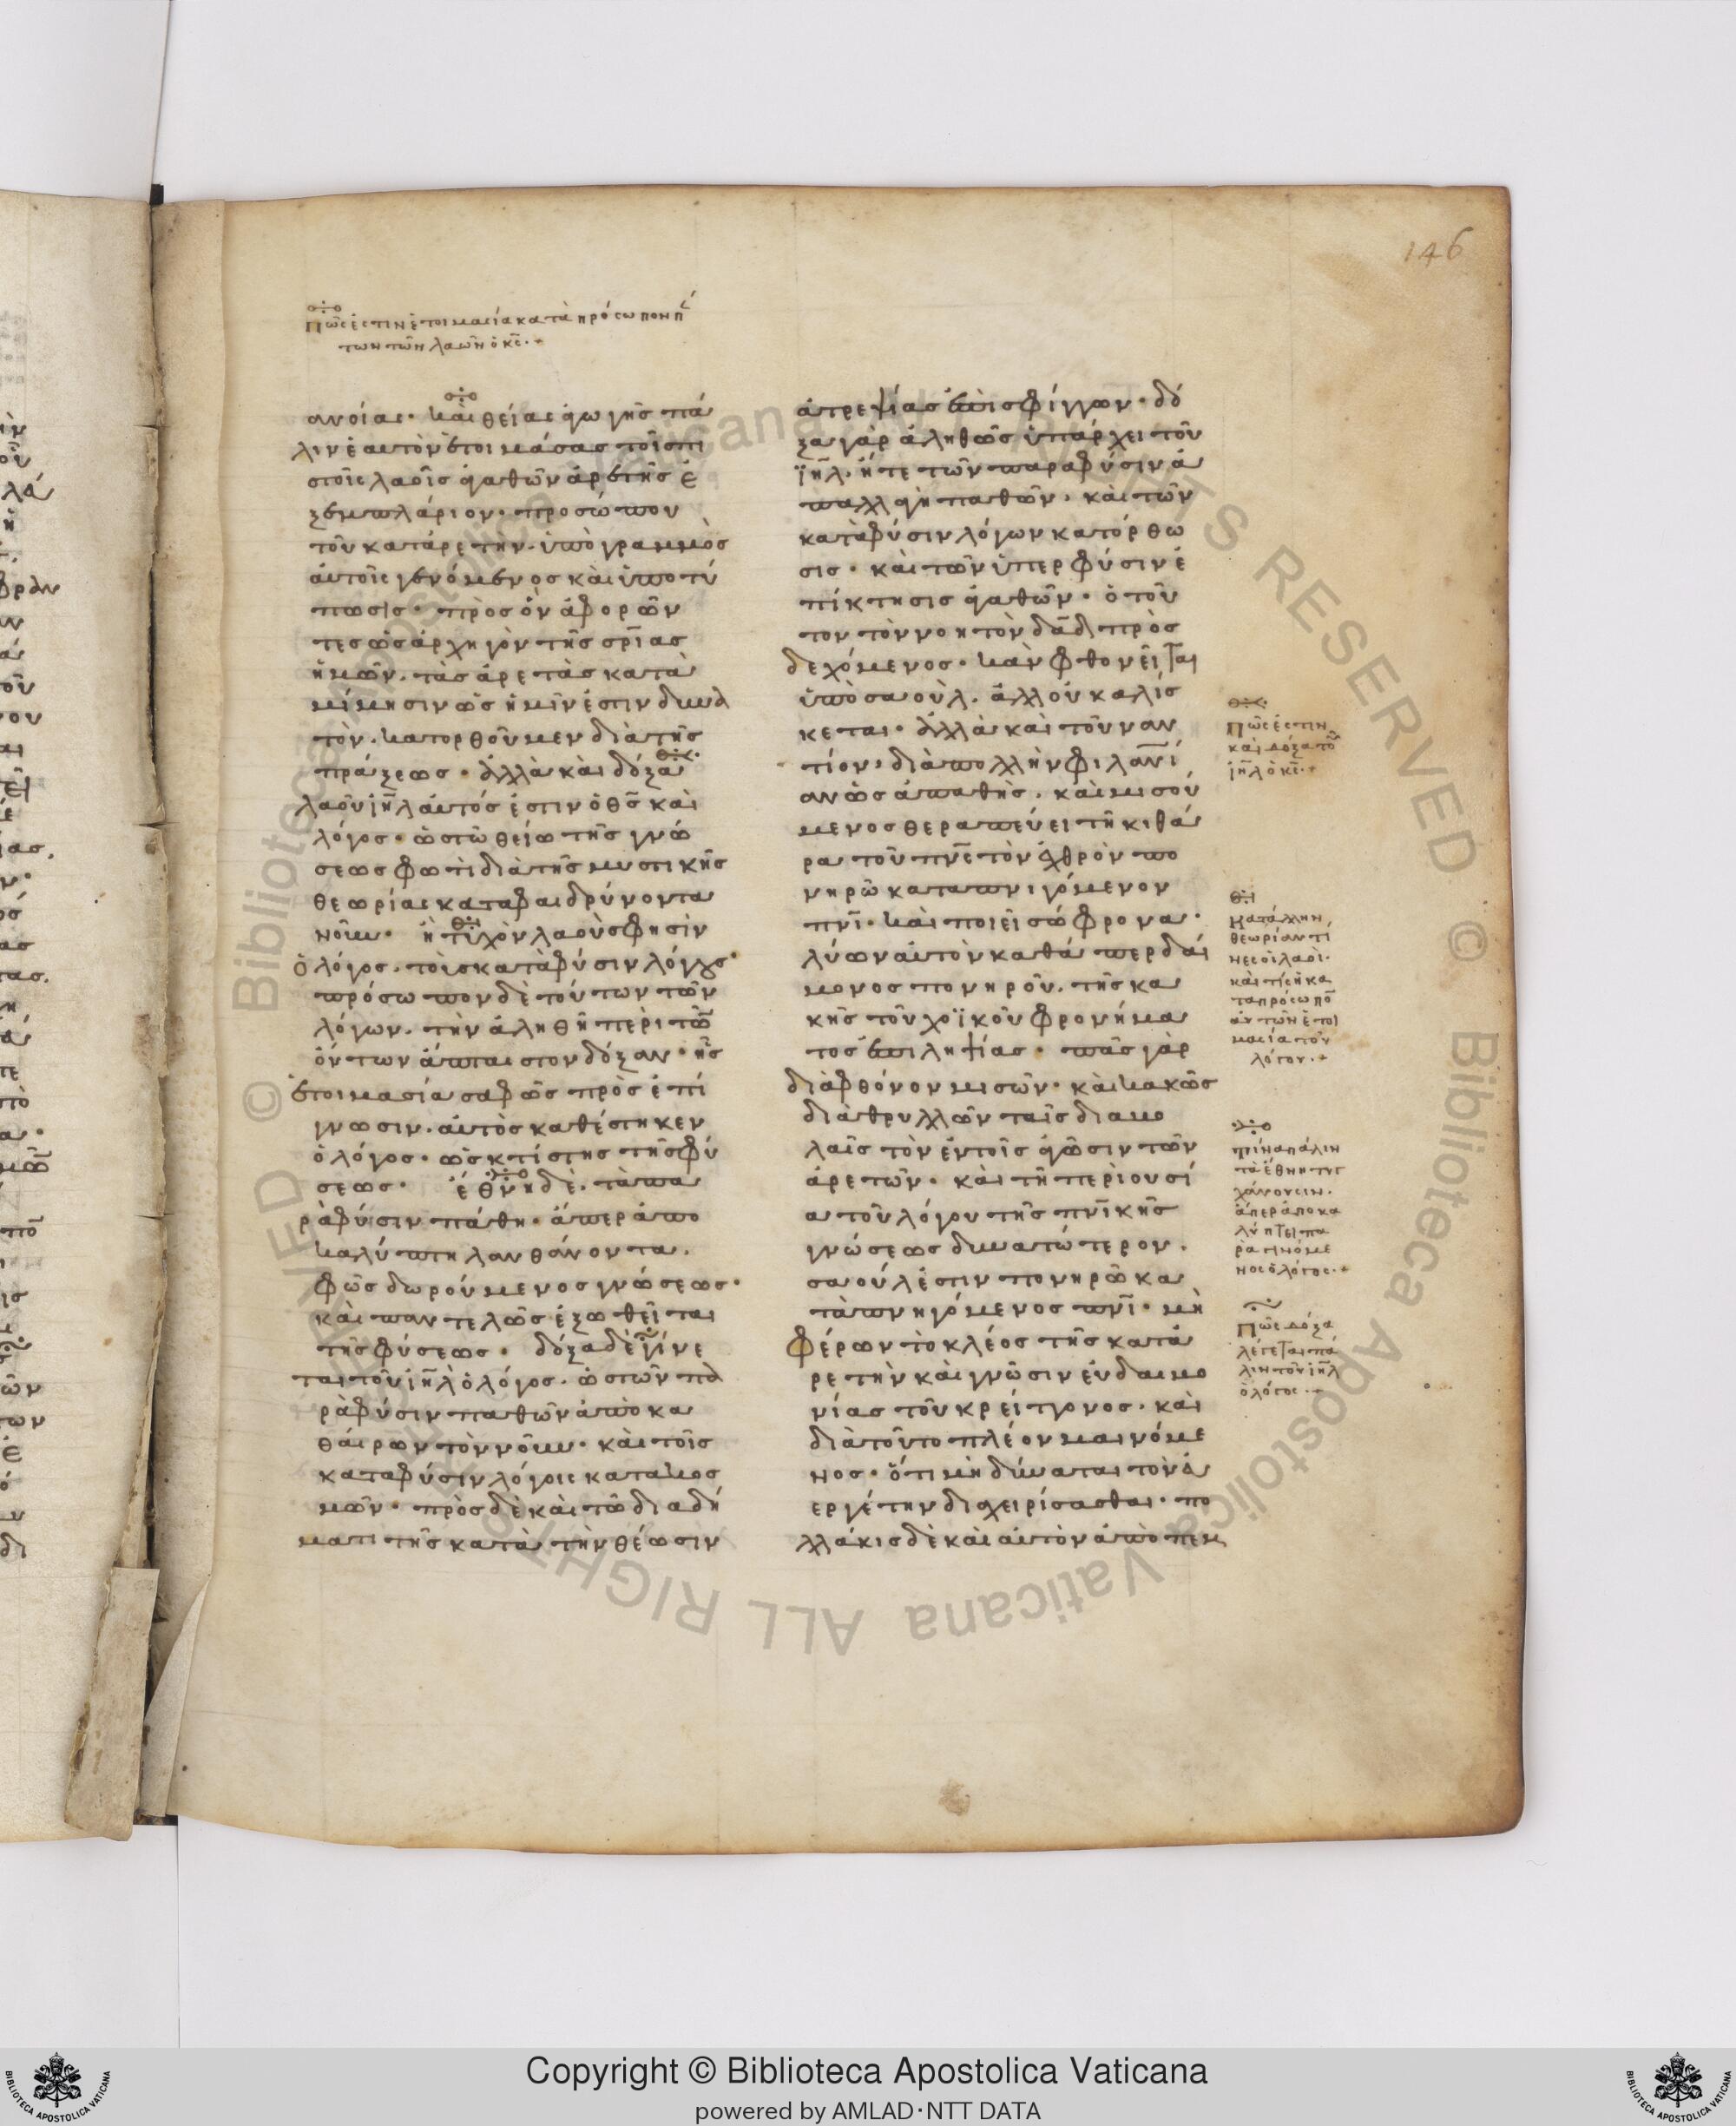 146
Πῶς ἐστιν ἑτοιμασία κατὰ πρόσωπον π
των τῶν λαῶν ὁ κ̅ς̅
ανοίας· καὶ θείας ἀγωγῆς πά
λιν ἑαυτὸν ἑτοιμάσας τοῖς πι
στοῖς λαοῖς ἀγαθῶν ἀρετῆς ἐ
ξεμπλάριον· προσώπου
τοῦ κατ' ἀρετὴν· ὑπογραμμὸς
αὐτοῖς γενόμενος καὶ ὑποτύ
πωσις· πρὸς ὃν ἀφορῶν
τες ὡς ἀρχηγὸν τῆς σρ̅ίας
ἡμῶν· τὰς ἀρετὰς κατὰ
μίμησιν ὡς ἡμῖν ἐστιν δυνα
τὸν· κατορθοῦμεν διὰ τῆς
πράξεως· ἀλλὰ καὶ δόξα
λαοῦ ι̅η̅λ̅ αὐτός ἐστιν ὁ θ̅ς̅ καὶ
λόγος· ὡς τῶ θείω τῆς γνώ
σεως φωτὶ διὰ τῆς μυστικῆς
θεωρίας καταφαιδρύνοντα
νοῦν· ἢ τυχὸν λαοὺς φησὶν
ὁ λόγος· τοὺς κατὰ φύσιν λόγους·
πρόσωπον δὲ τούτων τῶν
λόγων· τὴν ἀληθῆ περὶ τῶν
ὄντων ἄπταιστον δόξαν· ἧς
ἑτοιμασία σαφῶς πρὸς ἐπί
γνωσιν· αὐτὸς καθέστηκεν
ὁ λόγος· ὡς κτίστης τῆς φύ
σεως· ἔθνη δὲ· τὰ πα
ρὰ φύσιν πάθη· ἅπερ ἀπο
καλύπτη λανθάνοντα·
φῶς δωρούμενος γνώσεως·
καὶ παντελῶς ἐξωθεῖται
τῆς φύσεως· δόξα δὲ γίνε
ται τοῦ ι̅η̅λ̅ ὁ λόγος· ὡς τῶν πα
ρὰ φύσιν παθῶν ἀποκα
θαίρων τὸν νοῦν· καὶ τοῖς
κατα φύσιν λόγοις κατακοσ
μῶν· πρὸς δὲ καὶ τῶ διαδή
ματι τῆς κατὰ τὴν θέωσιν
ἀτρεψίας ἐπισφίγγων· δό
ξα γὰρ ἀληθῶς ὑπάρχει τοῦ
ι̅η̅λ̅· ἥ τε τῶν παρα φύσιν ἀ
παλλαγὴ παθῶν· καὶ τῶν
κατὰ φύσιν λόγων κατόρθω
σις· καὶ τῶν ὑπερ φύσιν ἐ
πίκτησις ἀγαθῶν· ὁ τοῦ
τον τὸν νοητὸν δα̅δ̅ προσ
δεχόμενος· κἂν φθονεῖται
ὑπὸ σαοὺλ· ἀλλ' οὐκ ἁλίσ
κεται· ἀλλὰ καὶ τοὐναν
τίον· διὰ πολλὴν φιλα̅νί
αν ὡς ἀπαθὴς· καὶ μισού
μενος θεραπεύει τῆ κιθά
ρα τοῦ π̅ν̅ς̅ τὸν ἐχθρὸν πο
νηρῶ καταπνιγόμενον
π̅ν̅ι̅· καὶ ποιεῖ σώφρονα·
λύων αὐτὸν καθάπερ δαί
μονος πονηροῦ· τῆς κα
κῆς τοῦ χοϊκοῦ φρονήμα
τος ἐπιληψίας· πᾶς γὰρ
διὰ φθόνον μισῶν· καὶ κακῶς
διὰ θρυλλῶν ταῖς διαβο
λαῖς τὸν ἐν τοῖς ἀγῶσιν τῶν
ἀρετῶν· καὶ τῆ περιουσί
α τοῦ λόγου τῆς π̅ν̅ικῆς
γνώσεως δυνατώτερον·
σαούλ ἐστιν πονηρῶ κα
ταπνηγόμενος π̅ν̅ι̅· μὴ
φέρων τὸ κλέος τῆς κατ' ἀ
ρετὴν καὶ γνῶσιν εὐδαιμο
νίας τοῦ κρείττονος· καὶ
διὰ τοῦτο πλέον μαινόμε
νος· ὅτι μὴ δύναται τὸν εὐ
εργέτην διαχειρίσασθαι· πο
λλάκις δὲ καὶ αὐτὸν ἀποπεμ
Πῶς ἐστιν
καὶ δόξα τοῦ
ι̅η̅λ̅ ὁ κ̅ς̅
Κατ' ἄλλην
θεωρίαν τί
νες οἱ λαοὶ·
καὶ τίς ἡ κα
τα πρόσωπον
αὐτῶν ἑτοι
μασία τοῦ
λόγου
Τίνα πάλιν
τὰ ἔθνη τυγ
χάνουσιν·
ἅπερ ἀποκα
λύπτει πα
ραγινόμε
νος ὁ λόγος
Πῶς δόξα
λέγεται πά
λιν τοῦ ι̅η̅λ̅
ὁ λόγος
Copyright © Biblioteca Apostolica Vaticana
powered by AMLAD·NTT DATA